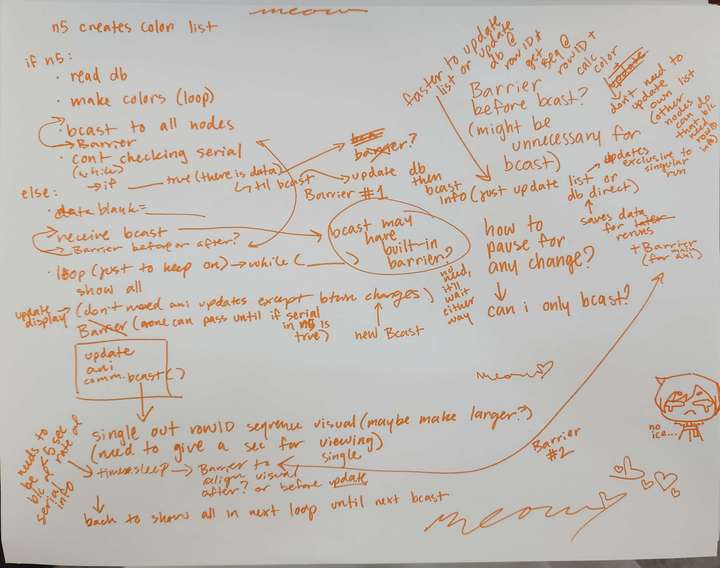 meow
n5 creates color list
if n5:
· read db
· make colors (loop)
· bcast to all nodes
Barrier
· cont checking serial
(while)
→ if — true (there is data)
↳ til bcast
else:
· data blank = ___
· receive bcast
· Barrier before or after?
· loop (just to keep on) → while (        )
show all
update display → (don't need ani updates except btwn changes)
Barrier (none can pass until if serial
in n5 is
true)
new Bcast
update
ani
comm.bcast()
barrier?
→ update db
then
bcast
info (just update list or
db direct)
Barrier #1
bcast may
have
built-in
barrier?
no
need,
it'll
wait
either
way
faster to update
list or update
db @
rowID +
get
seq @
rowID +
calc
color
Barrier
before bcast?
(might be
unnecessary for
bcast)
update
don't need to
update
own list
(other
nodes do
that blc
need
rowID
→ updates
exclusive to
singular
run
saves data
for later
reruns
+ Barrier
(for ani)
how to
pause for
any change?
can i only bcast?
meow
single out rowID sequence visual (maybe make larger?)
(need to give a sec for viewing)
single
→ time.sleep → Barrier to
align visual
after? or before update
Barrier
#2
needs to
be
serial
info
back to show all in next loop until next bcast
no
ice...
meow